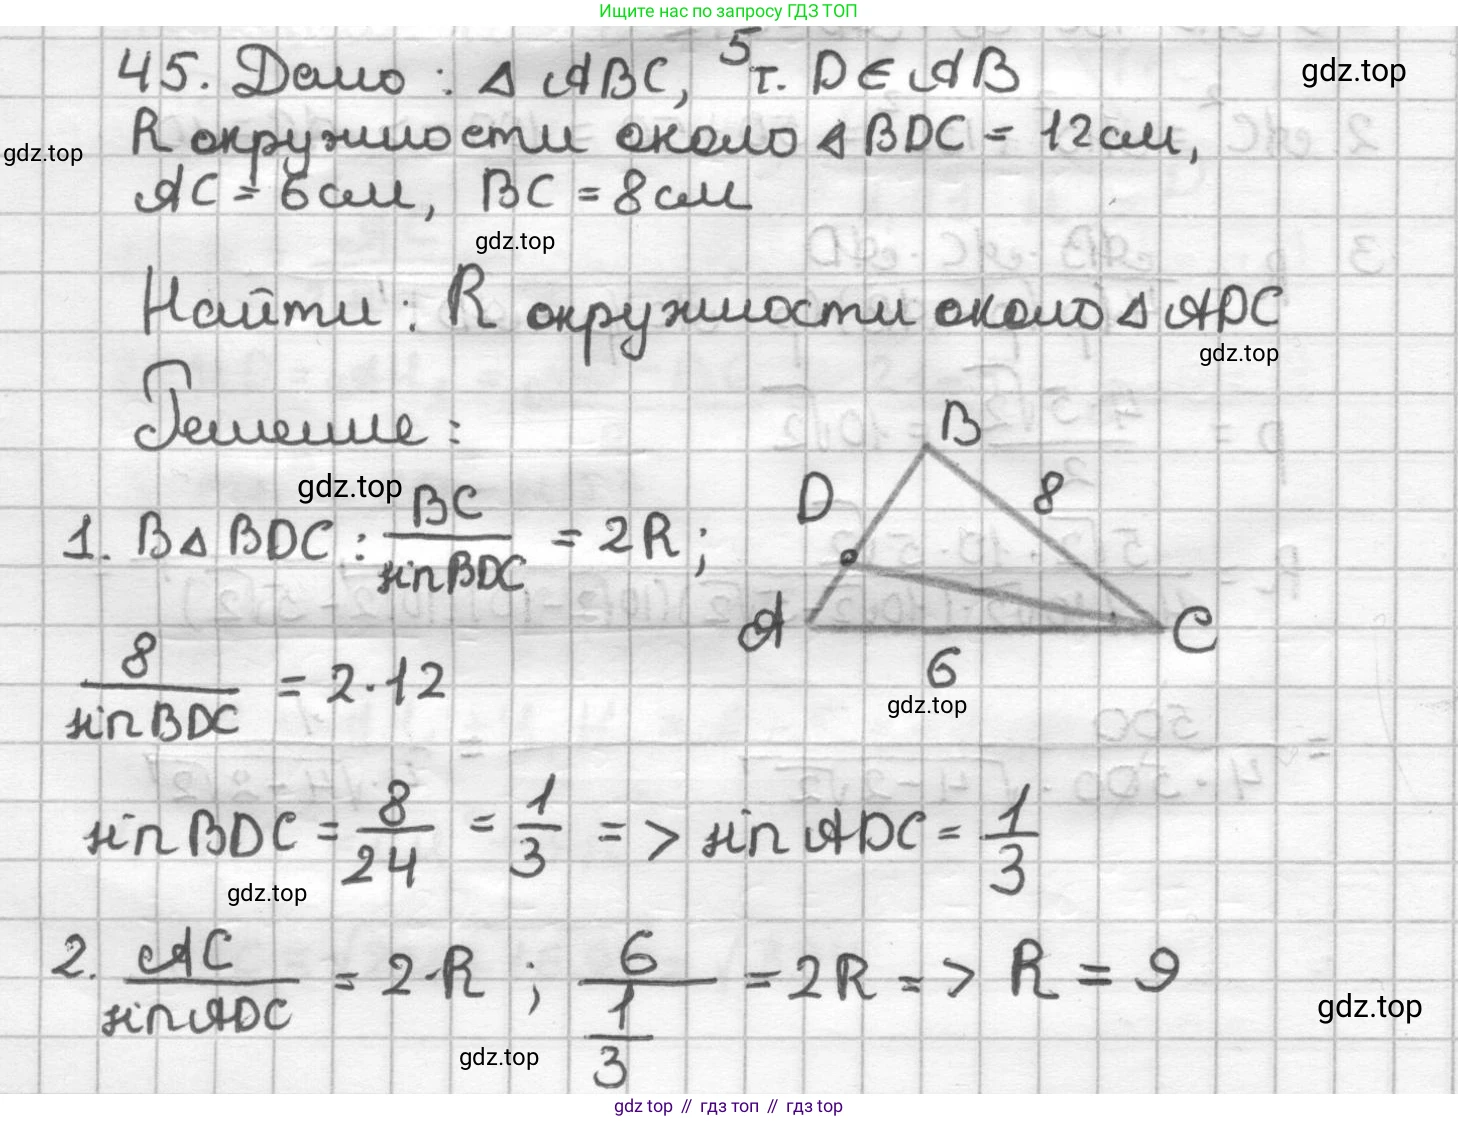 Ищите нас по запросу ГДЗ ТОП
45. Дано: Δ ABC, 5 т. D ∈ AB
gdz.top
R окружности около Δ BDC = 12 см,
gdz.top
AC = 6 см, BC = 8 см
gdz.top
Найти: R окружности около Δ ADC
gdz.top
Решение:
gdz.top
1. В Δ BDC: BC/sin BDC = 2R;
B
D
8
A
C
6
gdz.top
8/sin BDC = 2·12
sin BDC = 8/24 = 1/3 => sin ADC = 1/3
gdz.top
2. AC/sin ADC = 2·R; 6/(1/3) = 2R => R = 9
gdz.top
gdz.top
gdz top // гдз топ // гдз top